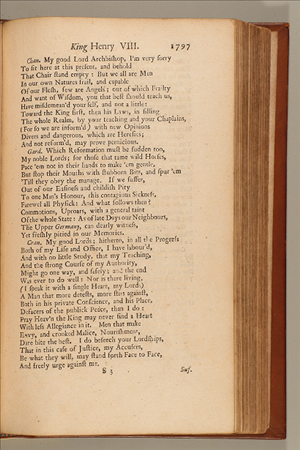 King Henry VIII. 1797
Chan. My good Lord Archbishop, I'm very sorry
To sit here at this present, and behold
That Chair stand empty: But we all are Men
In our own Natures frail, and capable
Of our Flesh, few are Angels; out of which Frailty
And want of Wisdom, you that best should teach us,
Have misdemean'd your self, and not a little:
Toward the King first, then his Laws, in filling
The whole Realm, by your teaching and your Chaplains,
(For so we are inform'd) with new Opinions
Divers and dangerous, which are Heresies;
And not reform'd, may prove pernicious.
Gard. Which Reformation must be sudden too,
My noble Lords; for those that tame wild Horses,
Pace 'em not in their hands to make 'em gentle,
But stop their Mouths with stubborn Bits, and spur 'em
'Till they obey the manage. If we suffer,
Out of our Easiness and childish Pity
To one Man's Honour, this contagious Sickness,
Farewel all Physick: And what follows then?
Commotions, Uproars, with a general taint
Of the whole State: As of late Days our Neighbours,
The Upper Germany, can dearly witness,
Yet freshly pitied in our Memories.
Cran. My good Lords; hitherto, in all the Progress
Both of my Life and Office, I have labour'd,
And with no little Study, that my Teaching,
And the strong Course of my Authority,
Might go one way, and safely; and the end
Was ever to do well: Nor is there living,
(I speak it with a single Heart, my Lords)
A Man that more detests, more stirs against,
Both in his private Conscience, and his Place,
Defacers of the publick Peace, than I do:
Pray Heav'n the King may never find a Heart
With less Allegiance in it. Men that make
Envy, and crooked Malice, Nourishment,
Dare bite the best. I do beseech your Lordships,
That in this case of Justice, my Accusers,
Be what they will, may stand forth Face to Face,
And freely urge against me.
S 3 Suf.